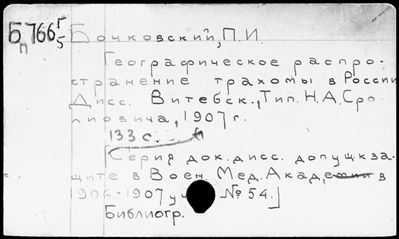 Б п 766 г/5
Бочковский, П.И.
Географическое распро-
странение трахомы в России
Дисс. Витебск., Тип. Н.А. Сро-
лиовича, 1907 г.
133 с.
[Серия док. дисс. допущ. к за-
щите в Воен. Мед. Академии в
1906-1907 уч. № 54.]
Библиогр.